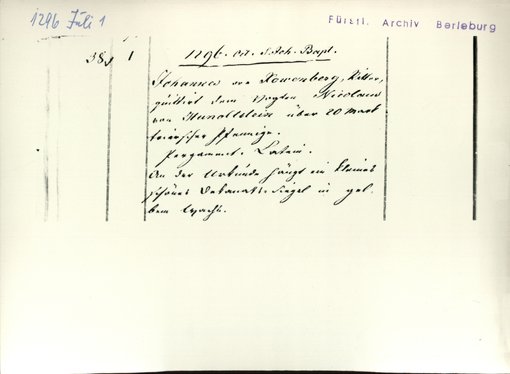 1296 Juli 1
Fürstl. Archiv Berleburg
38. 1 1296. oct. s. Joh. Bapt.
Johannes von Rowenberg, Ritter,
quittirt dem Vogten Nicolaus
von Hunoltstein über 20 Mark
trierischer Pfennige.
Pergament. Latein.
An der Urkunde hängt ein kleines
schönes Dekanats-Siegel in gel-
bem Wachs.